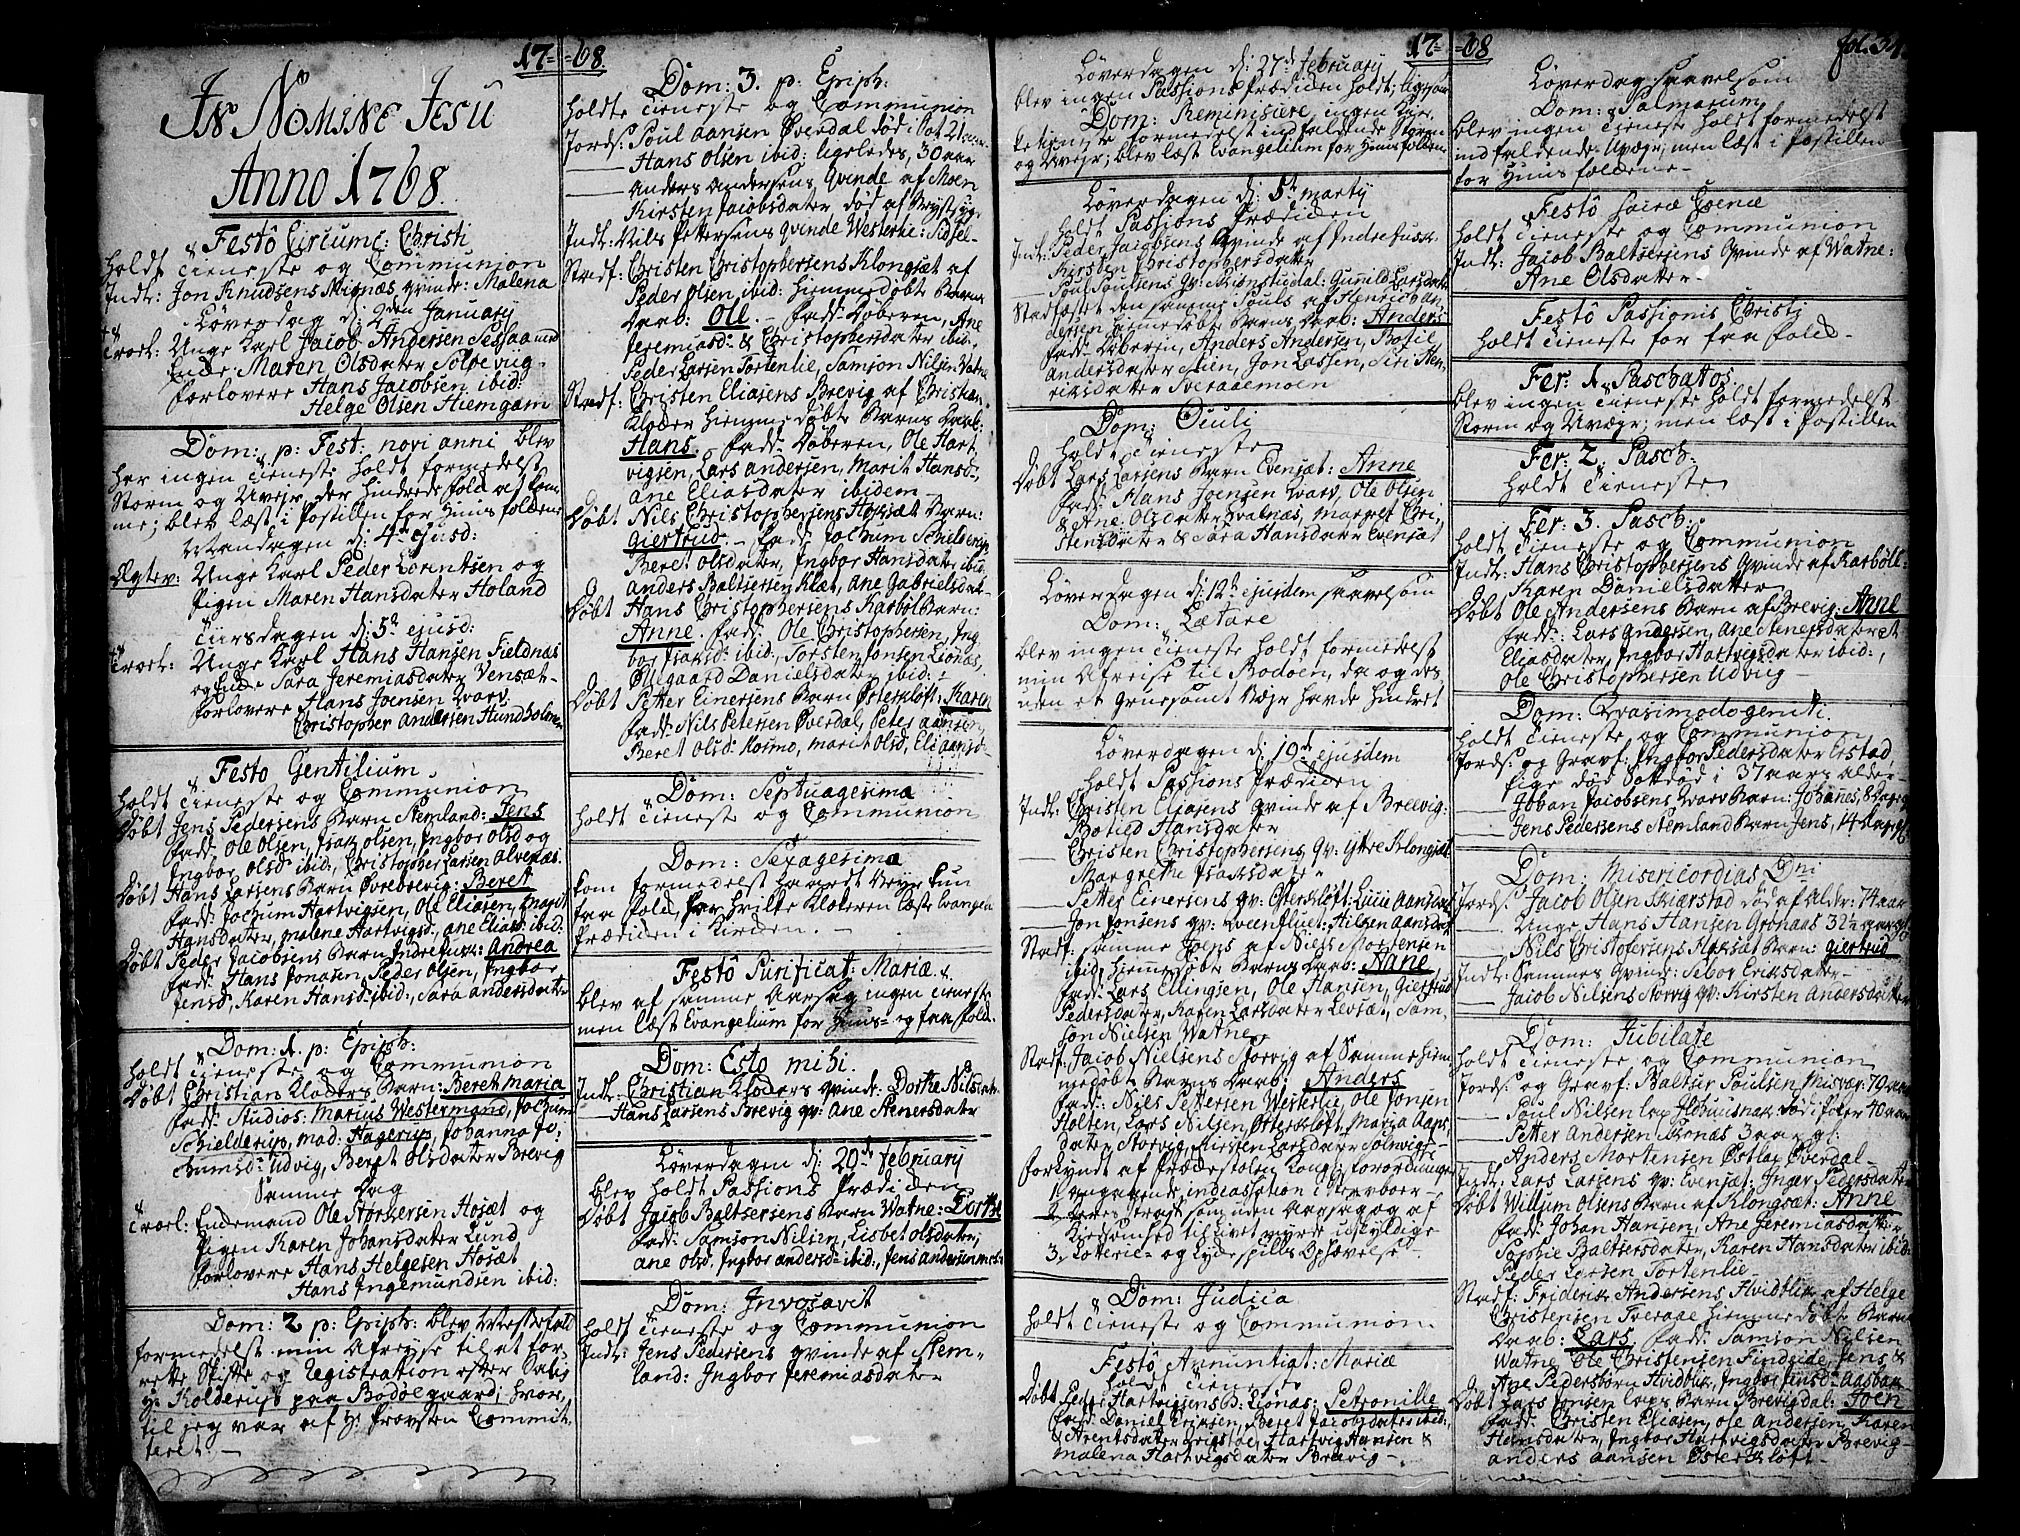 17 = = 68
In Nomine Jesu
Anno 1768.
Festô Circumc: Christi
holdt Tieneste og Communion
Indt: Jon Knudsens Misnæs qvinde: Malena
Løverdag d: 2den January
Trorl: Unge Karl Jacob Andersen
Enke Maren Olsdater Solpevug
forlovere Hans Jacobsen ibid:
Helge Olsen Hiemgam
Dom: p: Fest: novi anni blev
her ingen Tieneste holdt formedelst
Storm og Uvejr, der hindrede folk at kom-
me; blev læst i Postillen for Huus folckene
Mandagen d: 4de ejusd:
Ægtev: Unge Karl Peder Lorentsen og
Pigen Maren Hansdater Holand
Tirsdagen d: 5te ejusd:
Trorl: Unge Karl Hans Hansen Fieldnas
og Enke Sara Jeremiasdater Vensæt
forlovere Hans Joensen Kvarv
Christopher Andersen Hundholmen
Festo Gentilium
holdt Tieneste og Communion
Døbt Jens Pedersens Barn Nemland: Jens
fadd: Ole Olsen, Isak Olsen, Ingbor Olsd og
Ingbor Olsd ibid, Christopher Larsen Alvenæs
Døbt Hans Larsens Barn Øvrebrevig: Beret
fadd: Jochum Hartvigsen, Ole Eliasen, Marit
Hansdater, Malene Hartvigsd:, Ane Eliasd: ibid:
Døbt Peder Jacobsens Barn Indrefusk: Andrea
fadd: Hans Jonasen, Peder Olsen, Ingbor
Jensd:, Karen Hansd: ibid:, Sara Andersdater
Dom: 1. p: Epiph:
holdt Tieneste og Communion
Døbt Christian Kloders Barn: Beret Maria
fadd: Studios: Marius Westermand, Jochum
Schielderup, mad: Hagerup, Johanna Jo:
chumsd: Udvig, Beret Olsdater Brevig
Samme Dag
Trorl: Enkemand Ole Størkersen Høsæt og
Pigen Karen Johansdater Lund
forlovere Hans Helgesen Høsæt
Hans Ingemundsen ibid:
Dom: 2 p: Epiph: blev Messefald
formedelst min Afreyse til at for-
rette Skifte og Registration efter Salig
Hr Kolderup paa Bodøegaard; hvor-
til jeg var af Hr Provsten Commit-
teret –
Dom: 3. p: Epiph:
holdte Tieneste og Communion
Jords: Poul Aansen Øverdal død i Sot 21 aar
— Hans Olsen ibid: ligeledes, 30 aar
— Anders Andersens Qvinde af Moen
Kirsten Jacobsdater død af Brystsyge
Indt: Nils Pettersens qvinde Westerlie: Sidsel
Stadf: Christen Christophersens Klongsæt af
Peder Olsen ibid: hiemmedøbte Barns
Daab: Ole. – fadd: Døberen, Ane
Jeremiasd: & Christophersdater ibid:
Peder Larsen Tortenlie, Samson Nilsen Watne
Stadf: Christen Eliasens Brevig af Christian
Kloder hiemmedøbte Barns Daab:
Hans. fadd: Døberen, Ole Hart
vigsen, Lars Andersen, Marit Hansd:
Ane Eliasdater ibidem
Døbt Nils Christophersens Hoksæt Barn:
Giertrud. – fadd: Jochum Schielderup
Beret Olsdater, Ingbor Hansdater ibid:
Anders Baltsersen Klæt, Ane Gabrielsdat
Døbt Hans Christophersens Karbøl Barn:
Anne. fadd: Ole Christophersen, Ing
bor Isaksd: ibid:, Torsten Jonsen Lionas,
Øllgaard Danielsdater ibid:
Døbt Petter Einersens Barn Østerkløft: Karen
fadd: Nils Petersen Øverdal, Peter Aansen
Beret Olsd: Kosmo, Marit Olsd, Eli Aansd
Dom: Septuagesima
holdt Tieneste og Communion
Dom: Sexagesima
kom formedelst haardt Veyr kun
faa folk, for hvilke Klokeren læste Evangen
Prædiken i Kirken. –
Festô Purificat: Mariæ
blev af samme Aarsag ingen Tieneste
men læst Evangelium for Huus- og faa folk.
Dom: Esto mihi.
Indt: Christian Kloders qvinde: Dorthe Nilsdater
— Hans Larsens Brevig qv: Ane Stenersdater
Løverdagen d: 20de February
blev holdt Passions Prædiken
Døbt Jacob Baltsersens Barn Watne: Dorthe
fadd: Samson Nilsen, Lisbet Olsdater,
Ane Olsd: Ingbor Andersd: ibid:, Jens Andersen
Dom: Invocavit
holdt Tieneste og Communion
Indt: Jens Pedersens qvinde af Nem-
land: Ingbor Jeremiasdater
17 = = 68
fol. 34.
Løverdagen d: 27de February
blev ingen Passions Prædiken holdt; ligesom
Dom: Reminisiere, ingen Kir-
ke tieneste formedelst indfaldende Storm
og Uvejr; blev læst Evangelium for Huus folckene
Løverdagen d: 5te Marty
holdt Passions Prædiken
Indt: Peder Jacobsens Qvinde af Indrefusk:
Kirsten Christophersdater
— Poul Poulsens Qv: Skionstudal: Gunild Larsdater
Stadfæstet den samme Pouls af Henrich An
dersen hiemmedøbte Barns Daab: Anders
fadd: Døberen, Anders Andersen, Botil
Andersdater Stien, Jon Lassen, Siri Hen-
riksdater Sveraaemoen
Dom: Oculi
holdt Tieneste
Døbt Lars Larsens Barn Evensæt: Anne
fadd: Hans Joensen Kvarv, Ole Olsen
& Ane Olsdater Svatnæs, Margret Chri-
stensdater & Sara Hansdater Evensæt
Løverdagen d: 12te ejusdem saavelsom
Dom: Lætare
blev ingen Tieneste holdt formedelst
min Afreise til Bodøen, da og des-
uden et gruesomt Vejr havde hindret
Løverdagen d: 19de ejusdem
holdt Passions Prædiken
Indt: Christen Eliasens Qvinde af Breevig:
Botild Hansdater
— Christen Christophersens qv: Yttre Klongsæt
Margrethe Isaksdater
— Petter Einersens qv: Østerkløft: Lucie Aansdat
— Jon Jonsens qv: Lvenfluet: Hilken Aansdat
Stadf: samme Joens af Niels Mortensen
ibid, hiemmedøbte Barns Daab: Nane
fadd: Lars Ellingsen, Ole Hansen, Giertrud
Pedersdater, Karen Larsdater Levsæt, Sam-
son Nielsen Watne
Stadf: Jacob Nielsens Storvig af Samme hiem-
medøbt Barns Daab: Anders
fadd: Niels Pettersen Westerlie, Ole Jonsen
Holten, Lars Nilsen, Østerkløft, Maria Aans
dater Storvig, Kirsten Larsdater Solvvig
Forkyndt af Prædestolen Kongl: forordninger
1. angaaende indcassation i Sterboer
2. Deres straf som uden Aarsag og af
Kiedsomhed til Livet myrde uskyldige
3. Lotterie- og Lykkespills Ophævelse
Dom: Judica
holdt Tieneste og Communion.
Festô Annuntiat: Mariæ
holdt Tieneste
Døbt Peder Hartvigsens B: Lionas: Petronille
fadd: Daniel Eriksen, Beret Jacobsdater ibid:
& Arentsdater Grigstad, Hartvig Hansen &
Malena Hartvigsdater Brævig
Løverdag saavelsom
Dom: Palmarum
blev ingen Tieneste holdt formedelst
indfaldende Uvejr, men læst i Postillen
for Huus folckene –
Festô Sacræ Coenæ
holdt Tieneste og Communion
Indt: Jacob Baltsersens Qvinde af Watne:
Ane Olsdater
Festô Passionis Christi
holdt Tieneste for faa folk
Fer: 1. Paschatos.
blev ingen Tieneste holdt formedelst
Storm og Uvejr; men læst i Postillen
Fer: 2. Pasch:
holdt Tieneste
Fer: 3. Pasch:
holdt Tieneste og Communion
Indt: Hans Christophersens Qvinde af Karbøll:
Karen Danielsdatter
Døbt Ole Andersens Barn af Brevig: Anne
fadd: Lars Andersen, Ane Stenersdater et
Eliasdater, Ingbor Hartvigsdater ibid:,
Ole Christophersen Udvug
Dom: Qvasimodogeniti.
holdt Tieneste og Communion
Jords: og Gravf: Ingbor Pedersdater Erstad
Pige død Sottdød i 37 aars alder
— Johan Jacobsens Kvarv Barn: Johanes, 8 Dage gl
— Jens Pedersens Nemland Barn Jens, 14 Dage gl
Dom: Misericordias Dni
Jords: Jacob Olsen Skiærstad død af Alder: 74 aar
— Unge Hans Hansen Gronaas 32½ aar gl
— Nils Christofersens Hoksæt Barn: Giertrud
Indt: Sammes Qvinde: Sibor Eriksdater
— Jacob Nilsens Storvig qv: Kirsten Andersdatter
Dom: Jubilate
holdt Tieneste og Communion
Jords: og Gravf: Baltser Poulsen Misvær: 70 aar
— Poul Nilsen Lap død 40 aar
— Petter Andersen Skonas 3 aar gl:
— Anders Mortensen Østlap Øverdal
Indt: Lars Larsens qv: Evensæt: Inger Pedersdater
Døbt Willum Olsens Barn af Klongsæt: Anne
fadd: Johan Hansen, Ane Jeremiasdatter
Sophie Baltsersdater, Karen Hansdater ibid:
Peder Larsen Tortenlie
Stadf: Friderik Andersens Hvidblik af Helge
Christensen Tveraae hiemmedøbte Barns
Daab: Lars. fadd: Samson Nilsen
Watne, Ole Christensen Findeide, Jens &
Ane Pedersbørn Hvidblik, Ingbor Jensd: Aasbak
Døbt Lars Jonsens Laps Barn Brevigdal: Joen
fadd: Christen Eliasen, Ole Andersen, Karen
Hansdater, Ingbor Hartvigsdater Brevig
Anders Aansen Østerkløft